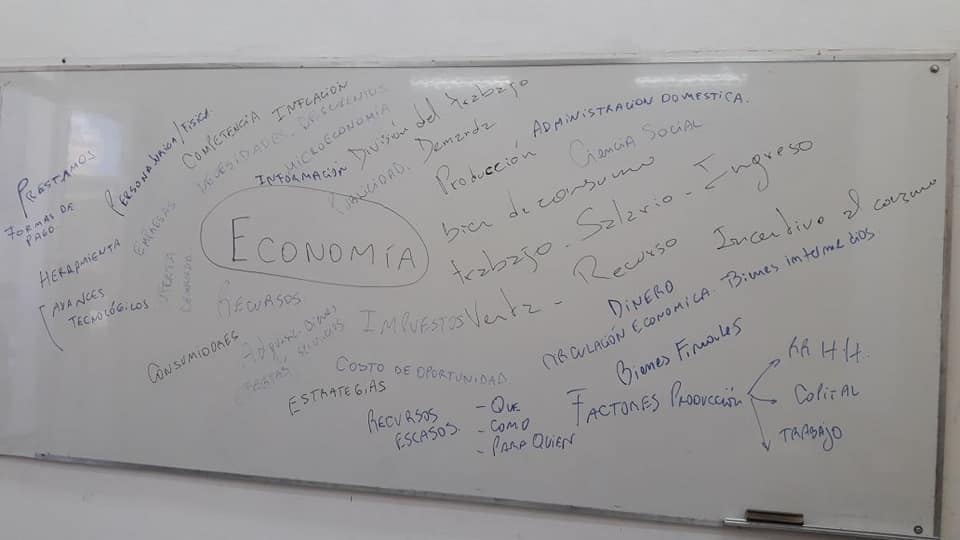 PRESTAMOS
FORMAS DE
PAGO
HERRAMIENTA
AVANCES
TECNOLÓGICOS
PERSONA JURIDICA/FISICA.
EMPRESAS
DEMANDA
COMPETENCIA INFLACIÓN
NECESIDADES - DESCUENTOS
MICROECONOMIA
INFORMACIÓN División del trabajo
PUBLICIDAD. Demanda
Producción ADMINISTRACION DOMESTICA.
Ciencia Social
ECONOMÍA
bien de consumo
trabajo - Salario - Ingreso
RECURSOS
IMPUESTOS Venta - Recurso Incentivo al consumo
CONSUMIDORES
Adquirir Bienes
servicios
DINERO
CIRCULACIÓN ECONOMICA. Bienes intermedios
COSTO DE OPORTUNIDAD
ESTRATEGIAS
Bienes Finales
RECURSOS
ESCASOS.
- QUE
- COMO
- PARA QUIEN
FACTORES PRODUCCIÓN
RR HH.
CAPITAL
TRABAJO